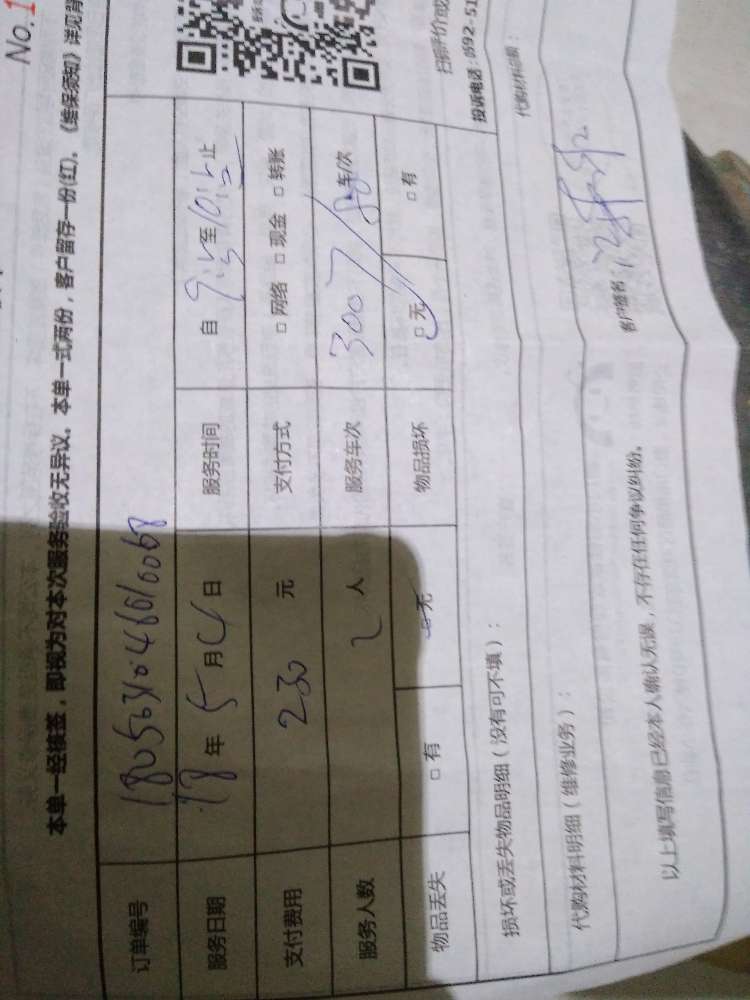 No.1
本单一经核签，即视为对本次服务验收无异议。本单一式两份，客户留存一份(红)。《维保须知》详见背
订单编号
服务日期 18 年 5 月 4 日 服务时间 自 至 止
支付费用 230 元 支付方式 □ 网络 □ 现金 □ 转账
服务人数 2 人 服务车次 车次
物品丢失 □ 有 □ 无 物品损坏 □ 无 □ 有
损坏或丢失物品明细（没有可不填）：
扫描评价或
投诉电话：0592-51
代购材料明细（维修业务）：
代购材料总额：
以上填写信息已经本人确认无误，不存在任何争议纠纷。
客户签名：